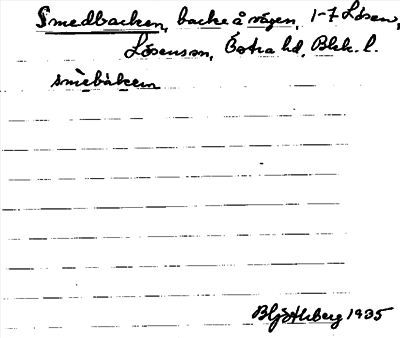 Smedbacken, backe å vägen, 1-7 Lösen,
Lösens sn, Östra hd, Blek. l.
smèbàken
Hj Åhlberg 1935